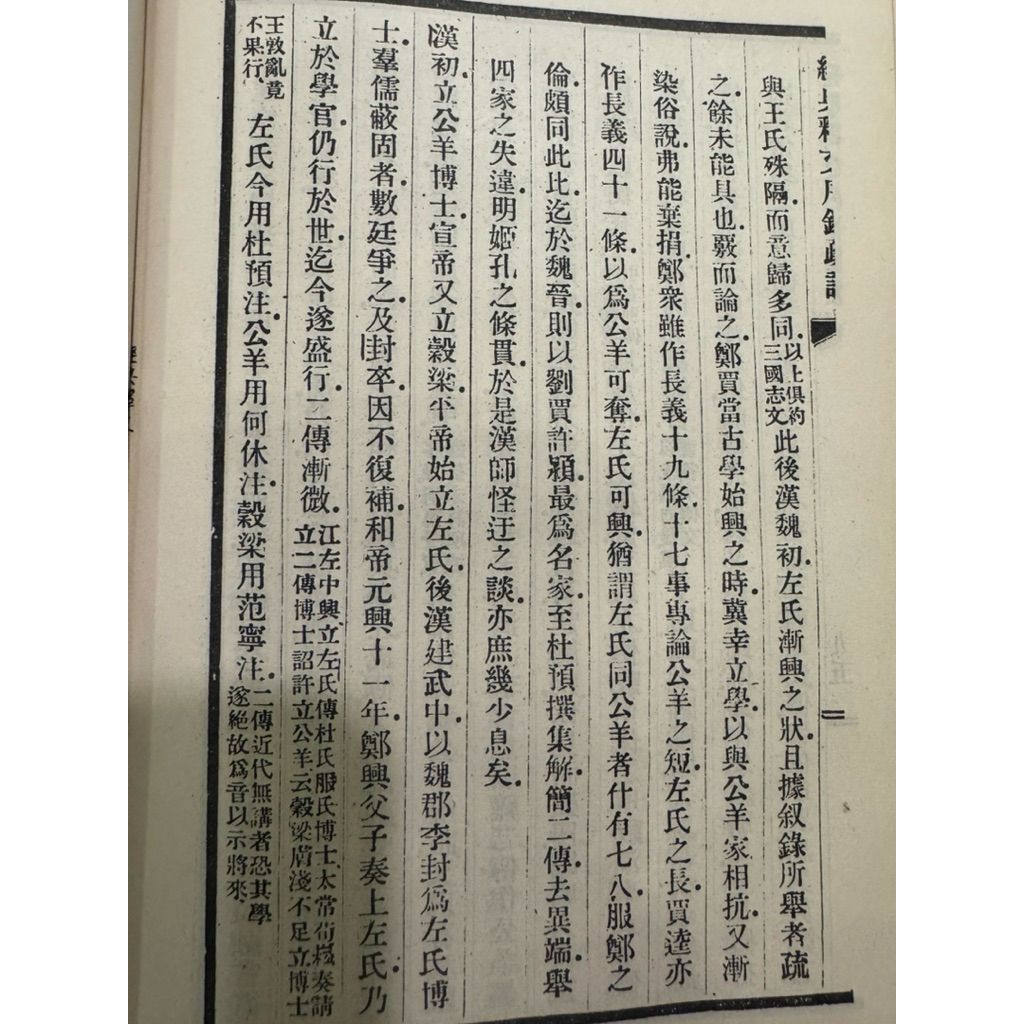 與王氏殊隔.而意歸多同.以上俱約三國志文此後漢魏初.左氏漸興之狀.且據叙錄所舉者疏
之.餘未能具也.覈而論之.鄭賈當古學始興之時.冀幸立學.以與公羊家相抗.又漸
染俗說.弗能棄捐.鄭衆雖作長義十九條.十七事專論公羊之短.左氏之長.賈逵亦
作長義四十一條.以爲公羊可奪.左氏可興.猶謂左氏同公羊者什有七八.服鄭之
倫.頗同此比.迄於魏晉.則以劉賈許潁.最爲名家.至杜預撰集解.簡二傳.去異端.舉
四家之失違.明姬孔之條貫.於是漢師怪迂之談.亦庶幾少息矣.
漢初.立公羊博士.宣帝又立穀梁.平帝始立左氏.後漢建武中.以魏郡李封爲左氏博
士.羣儒蔽固者.數廷爭之.及封卒.因不復補.和帝元興十一年.鄭興父子奏上左氏.乃
立於學官.仍行於世.迄今遂盛行.二傳漸微.江左中興.立左氏傳杜氏服氏博士.太常荀崧奏請立二傳博士.詔許立公羊.云穀梁膚淺.不足立博士
王敦亂竟不果行.左氏今用杜預注.公羊用何休注.穀梁用范寧注.二傳近代無講者恐其學遂絕故爲音以示將來.